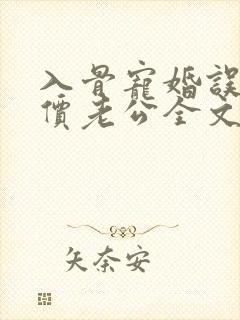 入骨寵婚誤
價老公全文
矢奈安